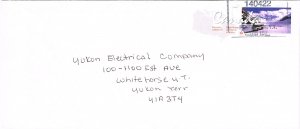 140422
Yukon Electrical Company
100-1100 1st Ave
Whitehorse Y.T.
Yukon Terr
Y1A3T4